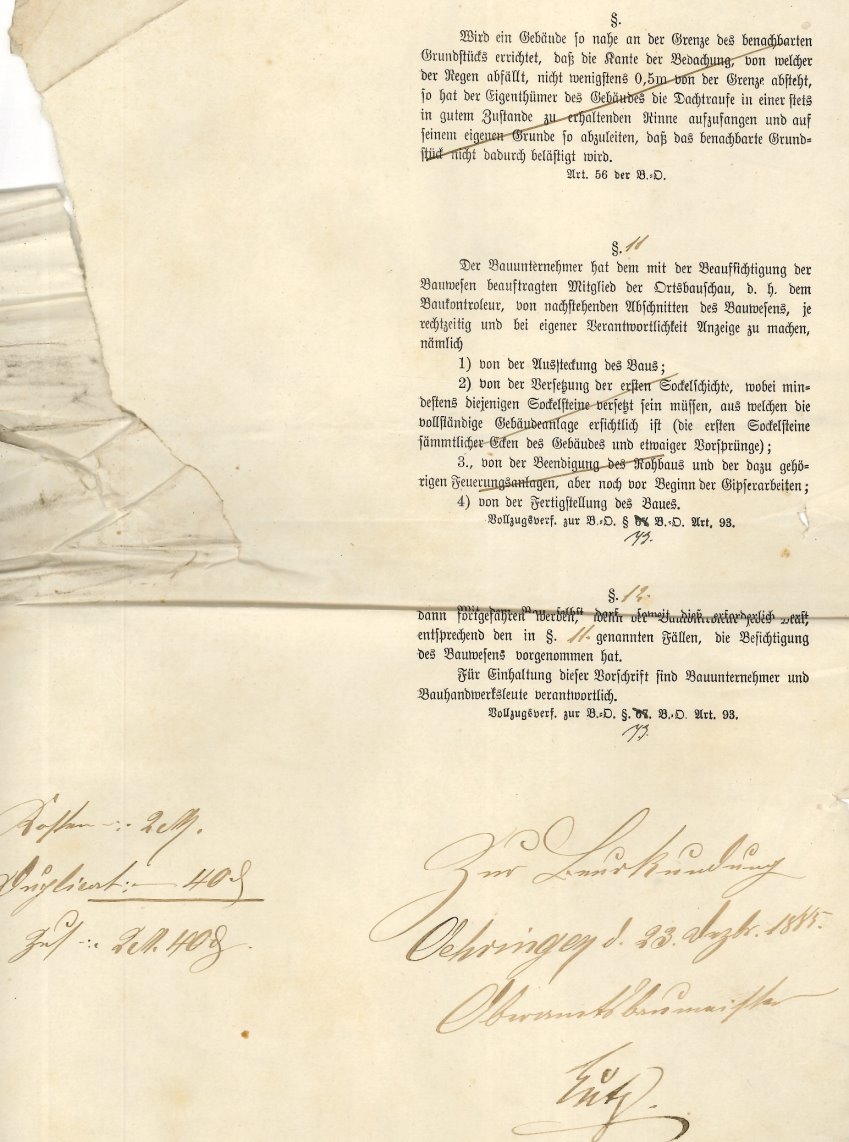 §.
Wird ein Gebäude so nahe an der Grenze des benachbarten
Grundstücks errichtet, daß die Kante der Bedachung, von welcher
der Regen abfällt, nicht wenigstens 0,5m von der Grenze absteht,
so hat der Eigenthümer des Gebäudes die Dachtraufe in einer stets
in gutem Zustande zu erhaltenden Rinne aufzufangen und auf
seinem eigenen Grunde so abzuleiten, daß das benachbarte Grund=
stück nicht dadurch belästigt wird.
Art. 56 der B.=O.
§. 11
Der Bauunternehmer hat dem mit der Beaufsichtigung der
Bauwesen beauftragten Mitglied der Ortsbauschau, d. h. dem
Baukontroleur, von nachstehenden Abschnitten des Bauwesens, je
rechtzeitig und bei eigener Verantwortlichkeit Anzeige zu machen,
nämlich
1) von der Aussteckung des Baus;
2) von der Versetzung der ersten Sockelschichte, wobei min=
destens diejenigen Sockelsteine versetzt sein müssen, aus welchen die
vollständige Gebäudeanlage ersichtlich ist (die ersten Sockelsteine
sämmtlicher Ecken des Gebäudes und etwaiger Vorsprünge);
3., von der Beendigung des Rohbaus und der dazu gehö=
rigen Feuerungsanlagen, aber noch vor Beginn der Gipserarbeiten;
4) von der Fertigstellung des Baues.
Vollzugsverf. zur B.=O. § B.=O. Art. 93.
73.
§. 12.
dann fortgefahren werden, wenn der
entsprechend den in §. 11. genannten Fällen, die Besichtigung
des Bauwesens vorgenommen hat.
Für Einhaltung dieser Vorschrift sind Bauunternehmer und
Bauhandwerksleute verantwortlich.
Vollzugsverf. zur B.=O. §. B.=O. Art. 93.
73.
Kosten -: 2 M.
Duplicat: — 40 ₰
Zus -: 2 M. 40 ₰.
Zur Beurkundung
Oehringen d. 23. Dezbr. 1885.
Oberamtsbaumeister